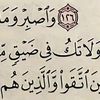 ١٢٦ وَٱصۡبِرۡ وَمَا
وَلَا تَكُ فِي ضَيۡقٖ مِّ
ٱتَّقَواْ وَّٱلَّذِينَ هُم